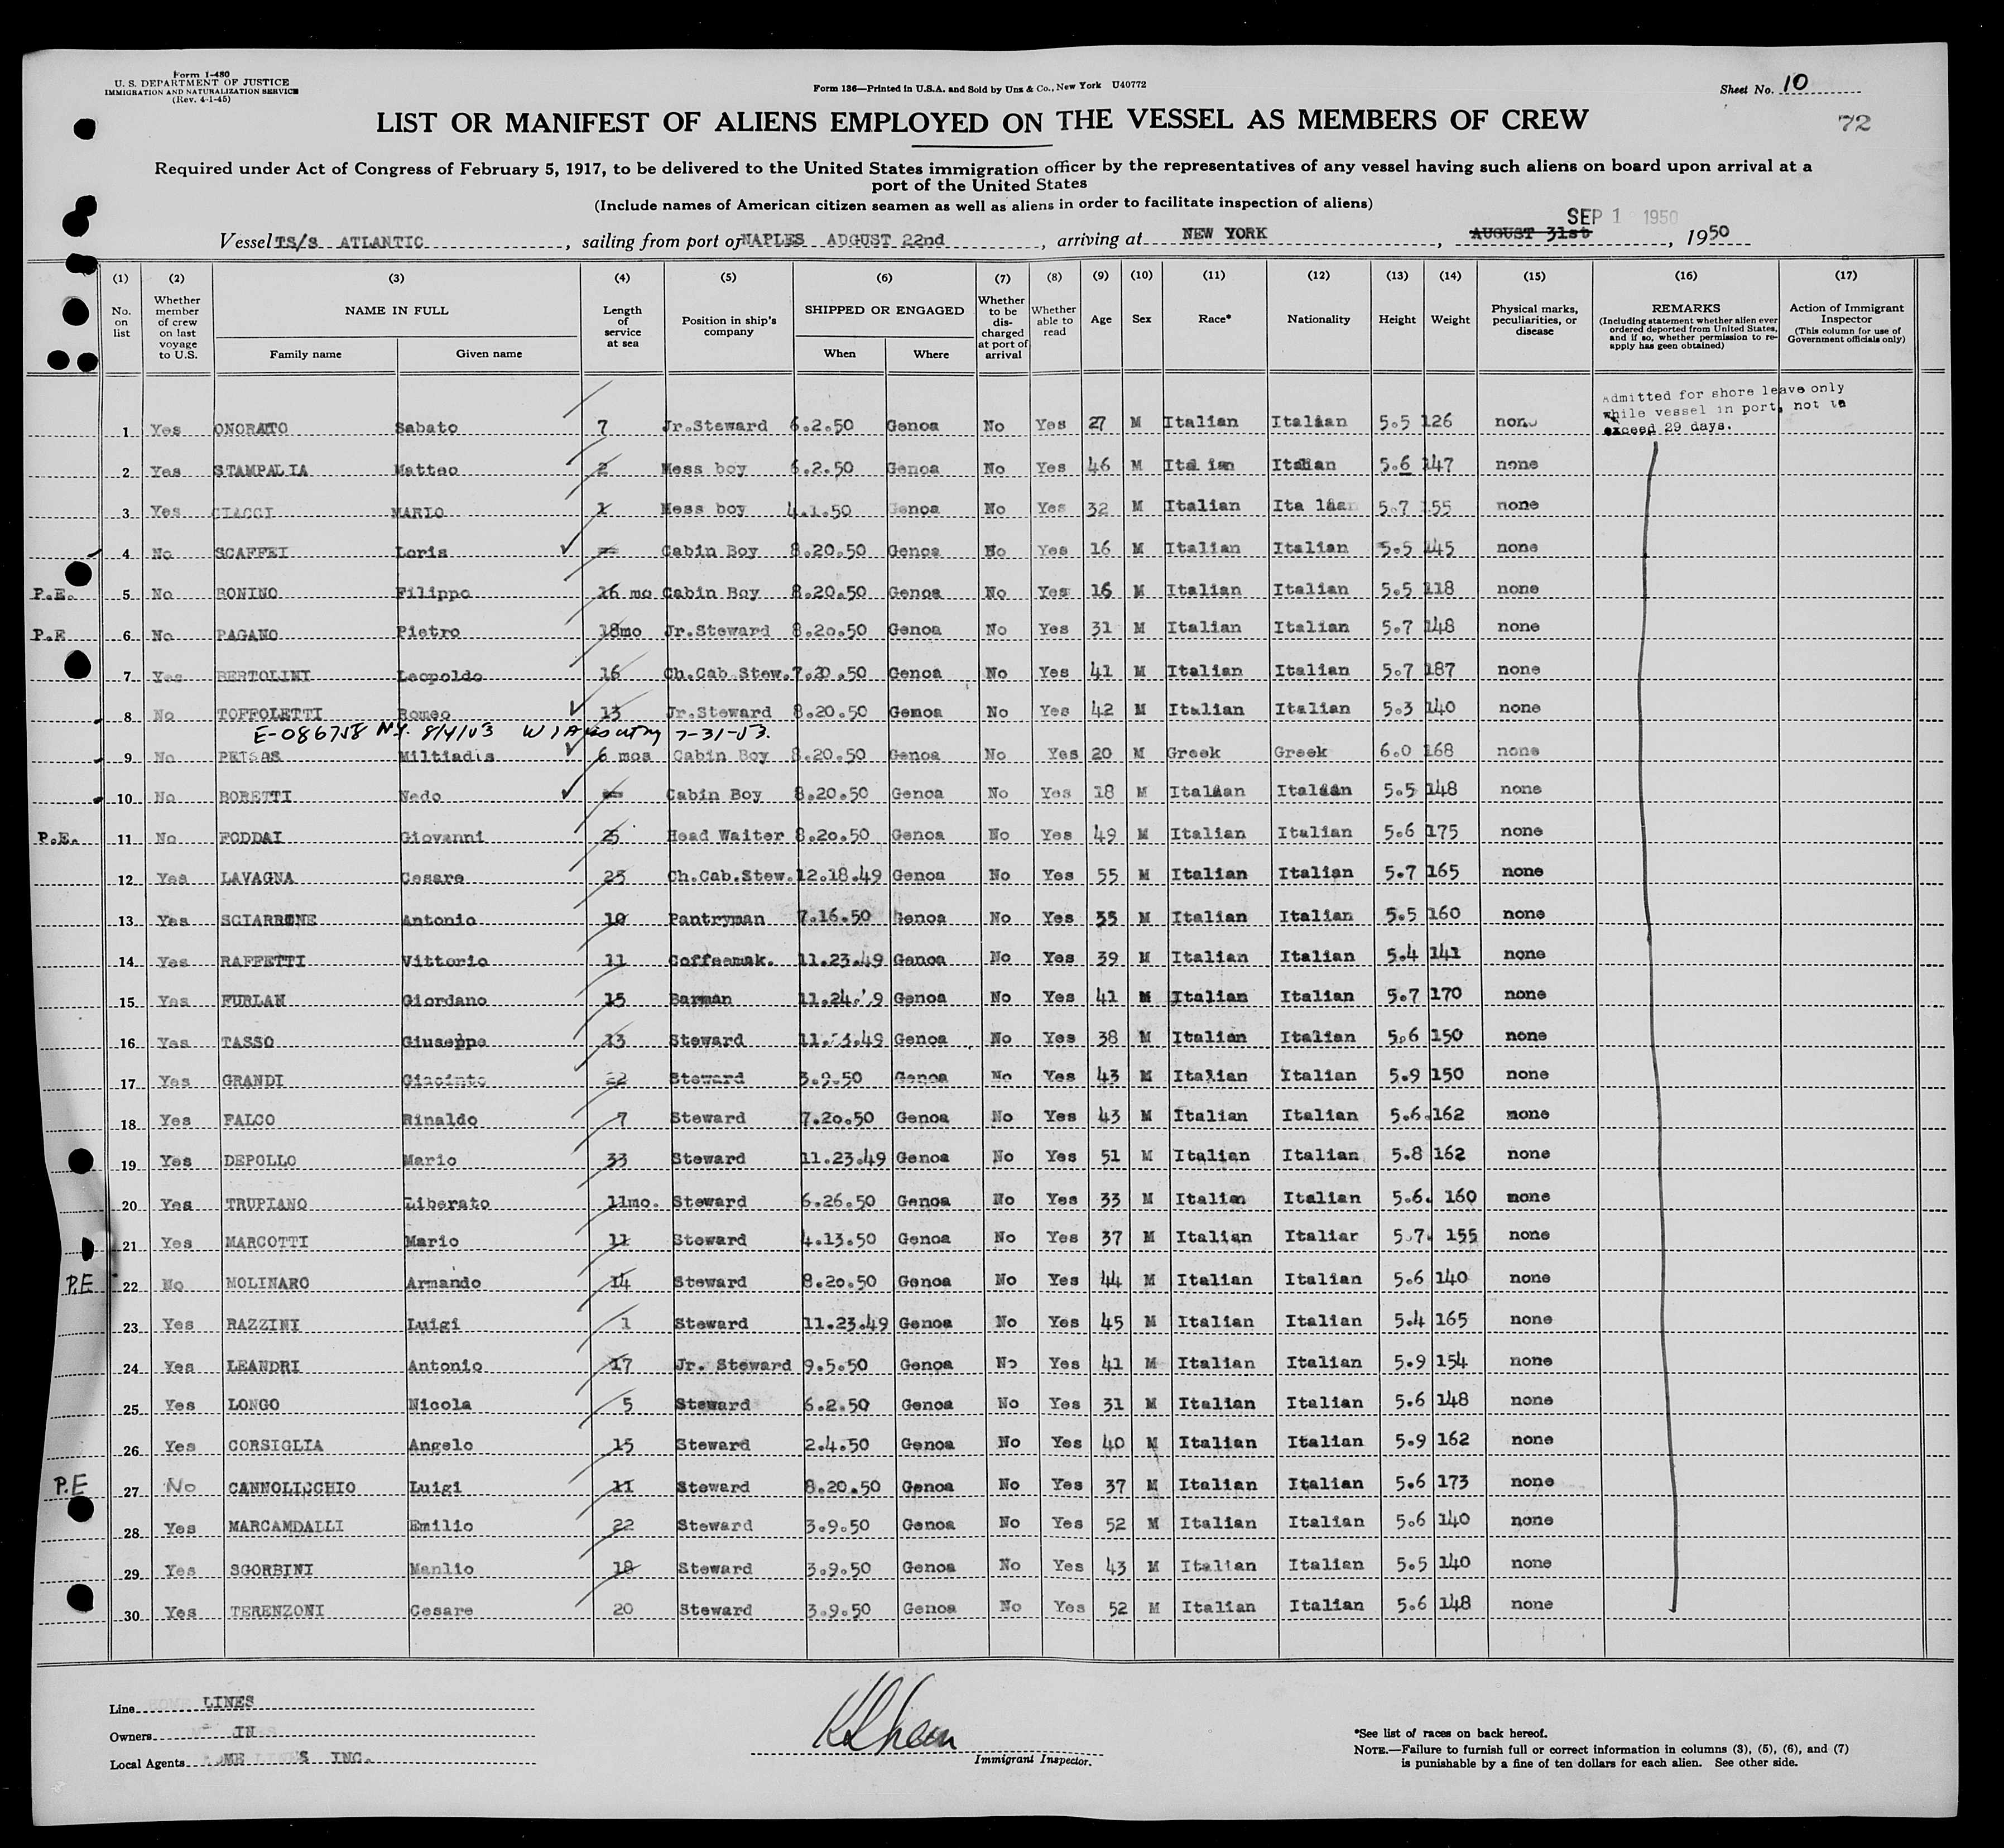 Form I-480
U. S. DEPARTMENT OF JUSTICE
IMMIGRATION AND NATURALIZATION SERVICE
(Rev. 4-1-45)
Form 136—Printed in U.S.A. and Sold by Unz & Co., New York U40772
Sheet No. 10
LIST OR MANIFEST OF ALIENS EMPLOYED ON THE VESSEL AS MEMBERS OF CREW
72
Required under Act of Congress of February 5, 1917, to be delivered to the United States immigration officer by the representatives of any vessel having such aliens on board upon arrival at a
port of the United States
(Include names of American citizen seamen as well as aliens in order to facilitate inspection of aliens)
SEP 1 1950
Vessel TS/S ATLANTIC, sailing from port of NAPLES AUGUST 22nd, arriving at NEW YORK, AUGUST 31st, 1950
(1) (2) (3) (4) (5) (6) (7) (8) (9) (10) (11) (12) (13) (14) (15) (16) (17)
No. on list
Whether member of crew on last voyage to U.S.
NAME IN FULL
Family name
Given name
Length of service at sea
Position in ship's company
SHIPPED OR ENGAGED
When
Where
Whether to be discharged at port of arrival
Whether able to read
Age
Sex
Race*
Nationality
Height
Weight
Physical marks, peculiarities, or disease
REMARKS
(Including statement whether alien ever ordered deported from United States, and if so, whether permission to reapply has geen obtained)
Action of Immigrant Inspector
(This column for use of Government officials only)
Admitted for shore leave only
while vessel in port, not to
exceed 29 days.
1 Yes ONORATO Sabato 7 Jr.Steward 6.2.50 Genoa No Yes 27 M Italian Italian 5.5 126 none
2 Yes STAMPALIA Matteo 2 Mess boy 6.2.50 Genoa No Yes 46 M Ital ian Italian 5.6 147 none
3 Yes CIACCI MARIO 1 Mess boy 4.1.50 Genoa No Yes 32 M Italian Ita lian 5.7 155 none
4 No SCAFFEI Loris Cabin Boy 8.20.50 Genoa No Yes 16 M Italian Italian 5.5 145 none
P.E. 5 No BONINO Filippo 16 mo Cabin Boy 8.20.50 Genoa No Yes 16 M Italian Italian 5.5 118 none
P.E 6 No PAGANO Pietro 18mo Jr.Steward 8.20.50 Genoa No Yes 31 M Italian Italian 5.7 148 none
7 Yes BERTOLINI Leopoldo 16 Ch.Cab Stew. 7.20.50 Genoa No Yes 41 M Italian Italian 5.7 187 none
8 No TOFFOLETTI Romeo 13 Jr.Steward 8.20.50 Genoa No Yes 42 M Italian Italian 5.3 140 none
E-086758 N.Y. 8/4/53 7-31-53.
9 No Miltiadis 6 mos Cabin Boy 8.20.50 Genoa No Yes 20 M Greek Greek 6.0 168 none
10 No BORETTI Nedo Cabin Boy 8.20.50 Genoa No Yes 18 M Italian Italian 5.5 148 none
P.E. 11 No FODDAI Giovanni 25 Head Waiter 8.20.50 Genoa No Yes 49 M Italian Italian 5.6 175 none
12 Yes LAVAGNA Cesare 25 Ch.Cab.Stew. 12.18.49 Genoa No Yes 55 M Italian Italian 5.7 165 none
13 Yes SCIARRONE Antonio 10 Pantryman 7.16.50 Genoa No Yes 35 M Italian Italian 5.5 160 none
14 Yes RAFFETTI Vittorio 11 Coffeemak. 11.23.49 Genoa No Yes 39 M Italian Italian 5.4 141 none
15 Yes FURLAN Giordano 15 Barman 11.24.49 Genoa No Yes 41 M Italian Italian 5.7 170 none
16 Yes TASSO Giuseppe 13 Steward 11.23.49 Genoa No Yes 38 M Italian Italian 5.6 150 none
17 Yes GRANDI Giacinto 22 Steward 3.9.50 Genoa No Yes 43 M Italian Italian 5.9 150 none
18 Yes FALCO Rinaldo 7 Steward 7.20.50 Genoa No Yes 43 M Italian Italian 5.6. 162 none
19 Yes DEPOLLO Mario 33 Steward 11.23.49 Genoa No Yes 51 M Italian Italian 5.8 162 none
20 Yes TRUPIANO Liberato 11mo. Steward 6.26.50 Genoa No Yes 33 M Italian Italian 5.6. 160 none
21 Yes MARCOTTI Mario 11 Steward 4.13.50 Genoa No Yes 37 M Italian Italian 5.7. 155 none
P.E 22 No MOLINARO Armando 14 Steward 8.20.50 Genoa No Yes 44 M Italian Italian 5.6 140 none
23 Yes RAZZINI Luigi 1 Steward 11.23.49 Genoa No Yes 45 M Italian Italian 5.4 165 none
24 Yes LEANDRI Antonio 17 Jr. Steward 9.5.50 Genoa No Yes 41 M Italian Italian 5.9 154 none
25 Yes LONGO Nicola 5 Steward 6.2.50 Genoa No Yes 31 M Italian Italian 5.6 148 none
26 Yes CORSIGLIA Angelo 15 Steward 2.4.50 Genoa No Yes 40 M Italian Italian 5.9 162 none
P.E 27 No CANNOLICCHIO Luigi 11 Steward 8.20.50 Genoa No Yes 37 M Italian Italian 5.6 173 none
28 Yes MARCAMDALLI Emilio 22 Steward 3.9.50 Genoa No Yes 52 M Italian Italian 5.6 140 none
29 Yes SGORBINI Manlio 18 Steward 3.9.50 Genoa No Yes 43 M Italian Italian 5.5 140 none
30 Yes TERENZONI Cesare 20 Steward 3.9.50 Genoa No Yes 52 M Italian Italian 5.6 148 none
Line HOME LINES
Owners IN
Local Agents HOME LINES INC.
Immigrant Inspector.
*See list of races on back hereof.
NOTE.—Failure to furnish full or correct information in columns (3), (5), (6), and (7)
is punishable by a fine of ten dollars for each alien. See other side.